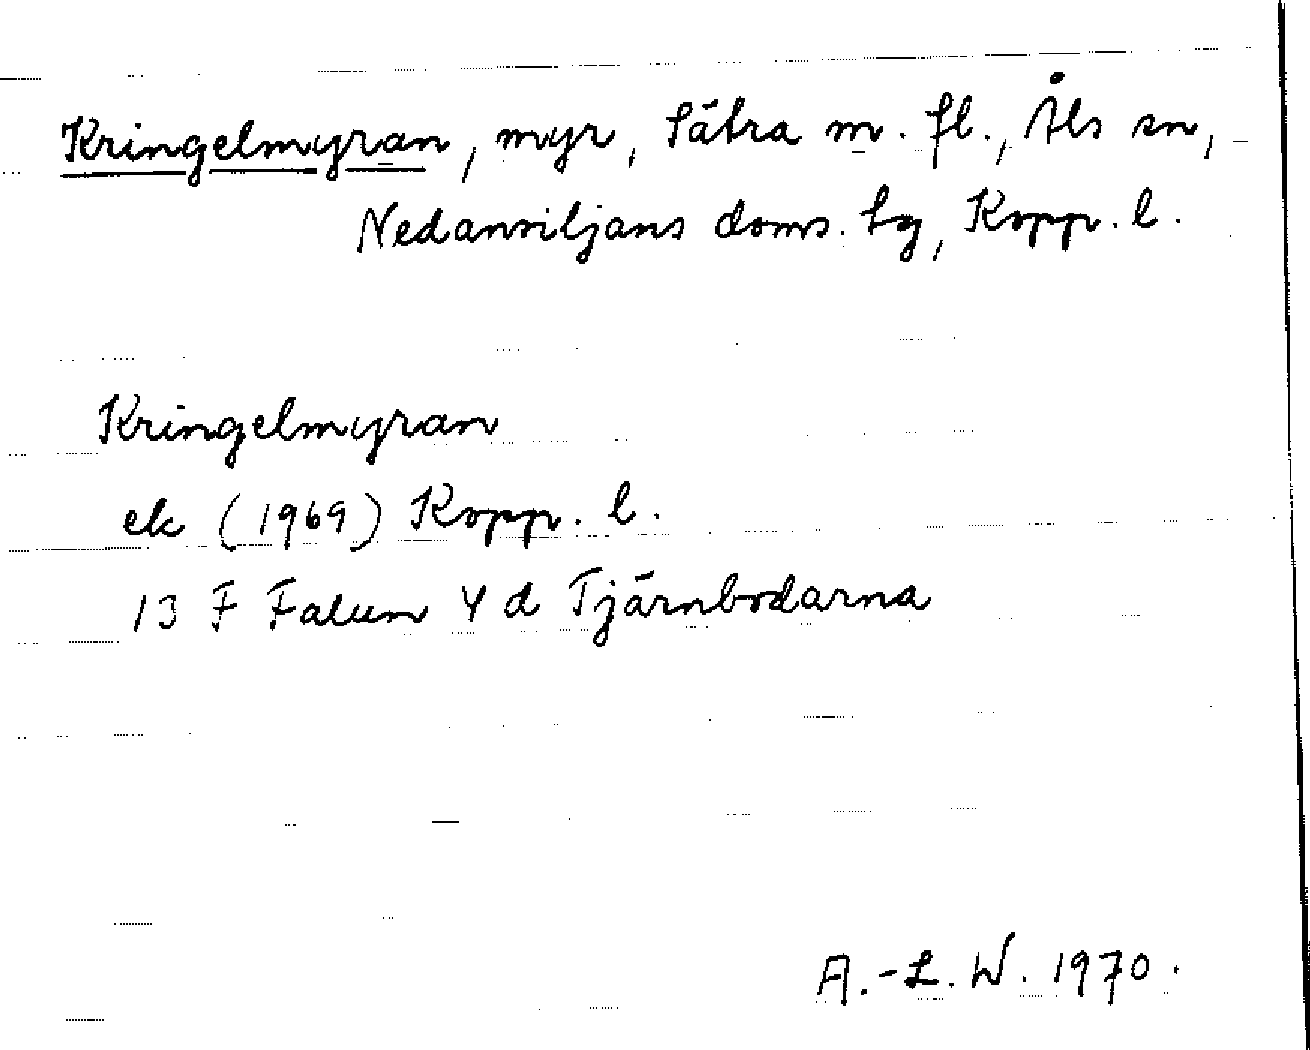 Kringelmyran, myr, Sätra m. fl., Åls sn,
Nedansiljans doms. hg, Kopp. l.
Kringelmyran
ek (1969) Kopp. l.
13 F Falun 4 d Tjärnbodarna
A.-L. W. 1970.